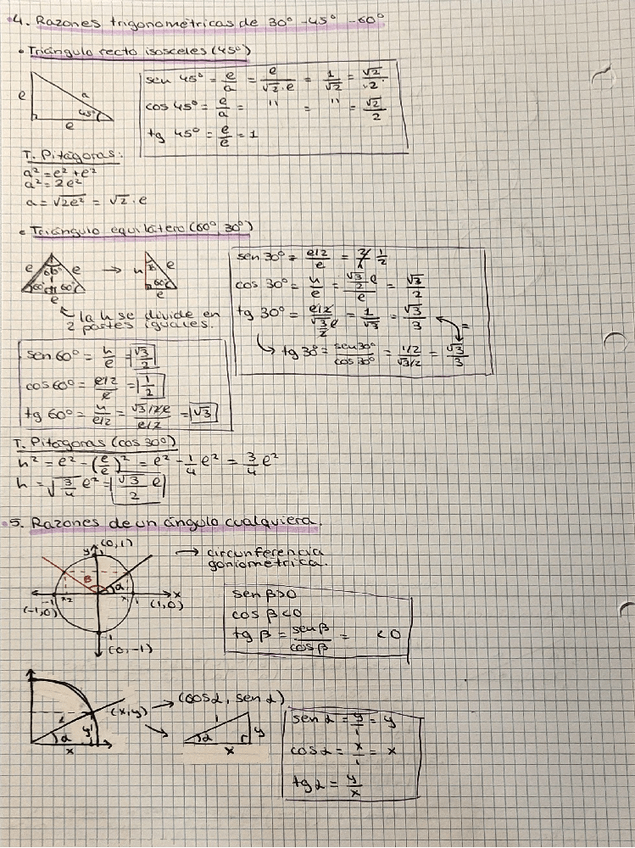 4. Razones trigonométricas de 30° - 45° - 60°
• Triángulo recto isosceles (45°)
e a 45° e
sen 45° = e/a = e/√2·e = 1/√2 = √2/2
cos 45° = e/a = " = " = √2/2
tg 45° = e/e = 1
T. Pitágoras:
a² = e² + e²
a² = 2e²
a = √2e² = √2 · e
• Triángulo equilátero (60°, 30°)
e 60° e 60° 60° e → h e 60°
la h se divide en
2 partes iguales.
sen 30° = e/2/e = 1/2
cos 30° = h/e = √3/2 e/e = √3/2
tg 30° = e/2/√3/2 e = 1/√3 = √3/3
↳ tg 30° = sen 30°/cos 30° = 1/2/√3/2 = √3/3
sen 60° = h/e = √3/2
cos 60° = e/2/e = 1/2
tg 60° = h/e/2 = √3/2 e/e/2 = √3
T. Pitágoras (cos 30°)
h² = e² - (e/e)² = e² - 1/4 e² = 3/4 e²
h = √3/4 e² = √3/2 e
5. Razones de un ángulo cualquiera.
y (0,1)
→ circunferencia
goniométrica.
B α
-1 x₂ x₁ 1 x
(-1,0) (1,0)
-1 (0,-1)
sen β > 0
cos β < 0
tg β = sen β/cos β = < 0
(x,y) → (cos α, sen α)
1 α y x
1 α y x
sen α = y/1 = y
cos α = x/1 = x
tg α = y/x